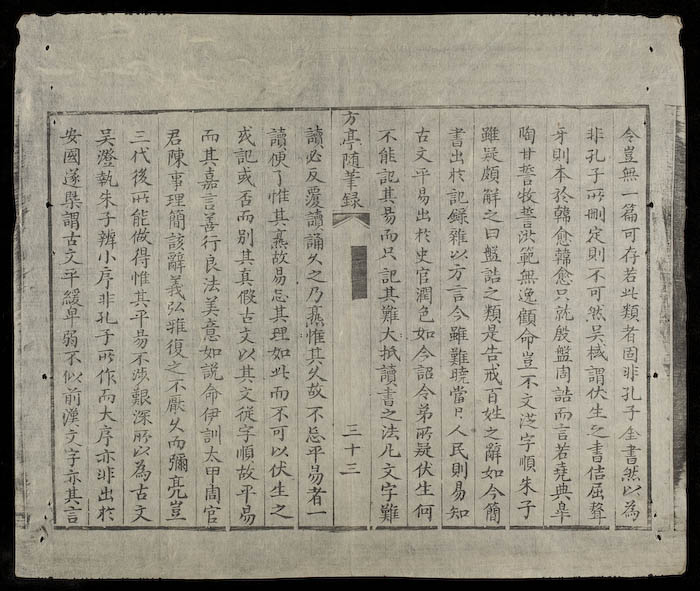 令豈無一篇可存若此類者固非孔子全書然以為
非孔子所刪定則不可然吳棫謂伏生之書佶屈聱
牙則本於韓愈韓愈只就殷盤周誥而言若堯典皐
陶甘誓牧誓洪範無逸顧命豈不文從字順朱子
雖疑頗解之曰盤誥之類是告戒百姓之辭如今簡
書出於記錄雜以方言今雖難曉當日人民則易知
古文平易出於史官潤色如今詔令弟所疑伏生何
不能記其易而只記其難大抵讀書之法凡文字難
方亭隨筆錄
三十三
讀必反覆讀誦久之乃熹惟其久故不忘平易者一
讀便了惟其熹故易忘其理如此而不可以伏生之
或記或否而別其真假古文以其文從字順故平易
而其嘉言善行良法美意如說命伊訓太甲周官
君陳事理簡該辭義弘雅復之不厭久而彌亮豈
三代後所能做得惟其平易不涉艱深所以為古文
吳澄執朱子辨小序非孔子所作而大序亦非出於
安國遂槩謂古文平緩卑弱不似前漢文字亦其言